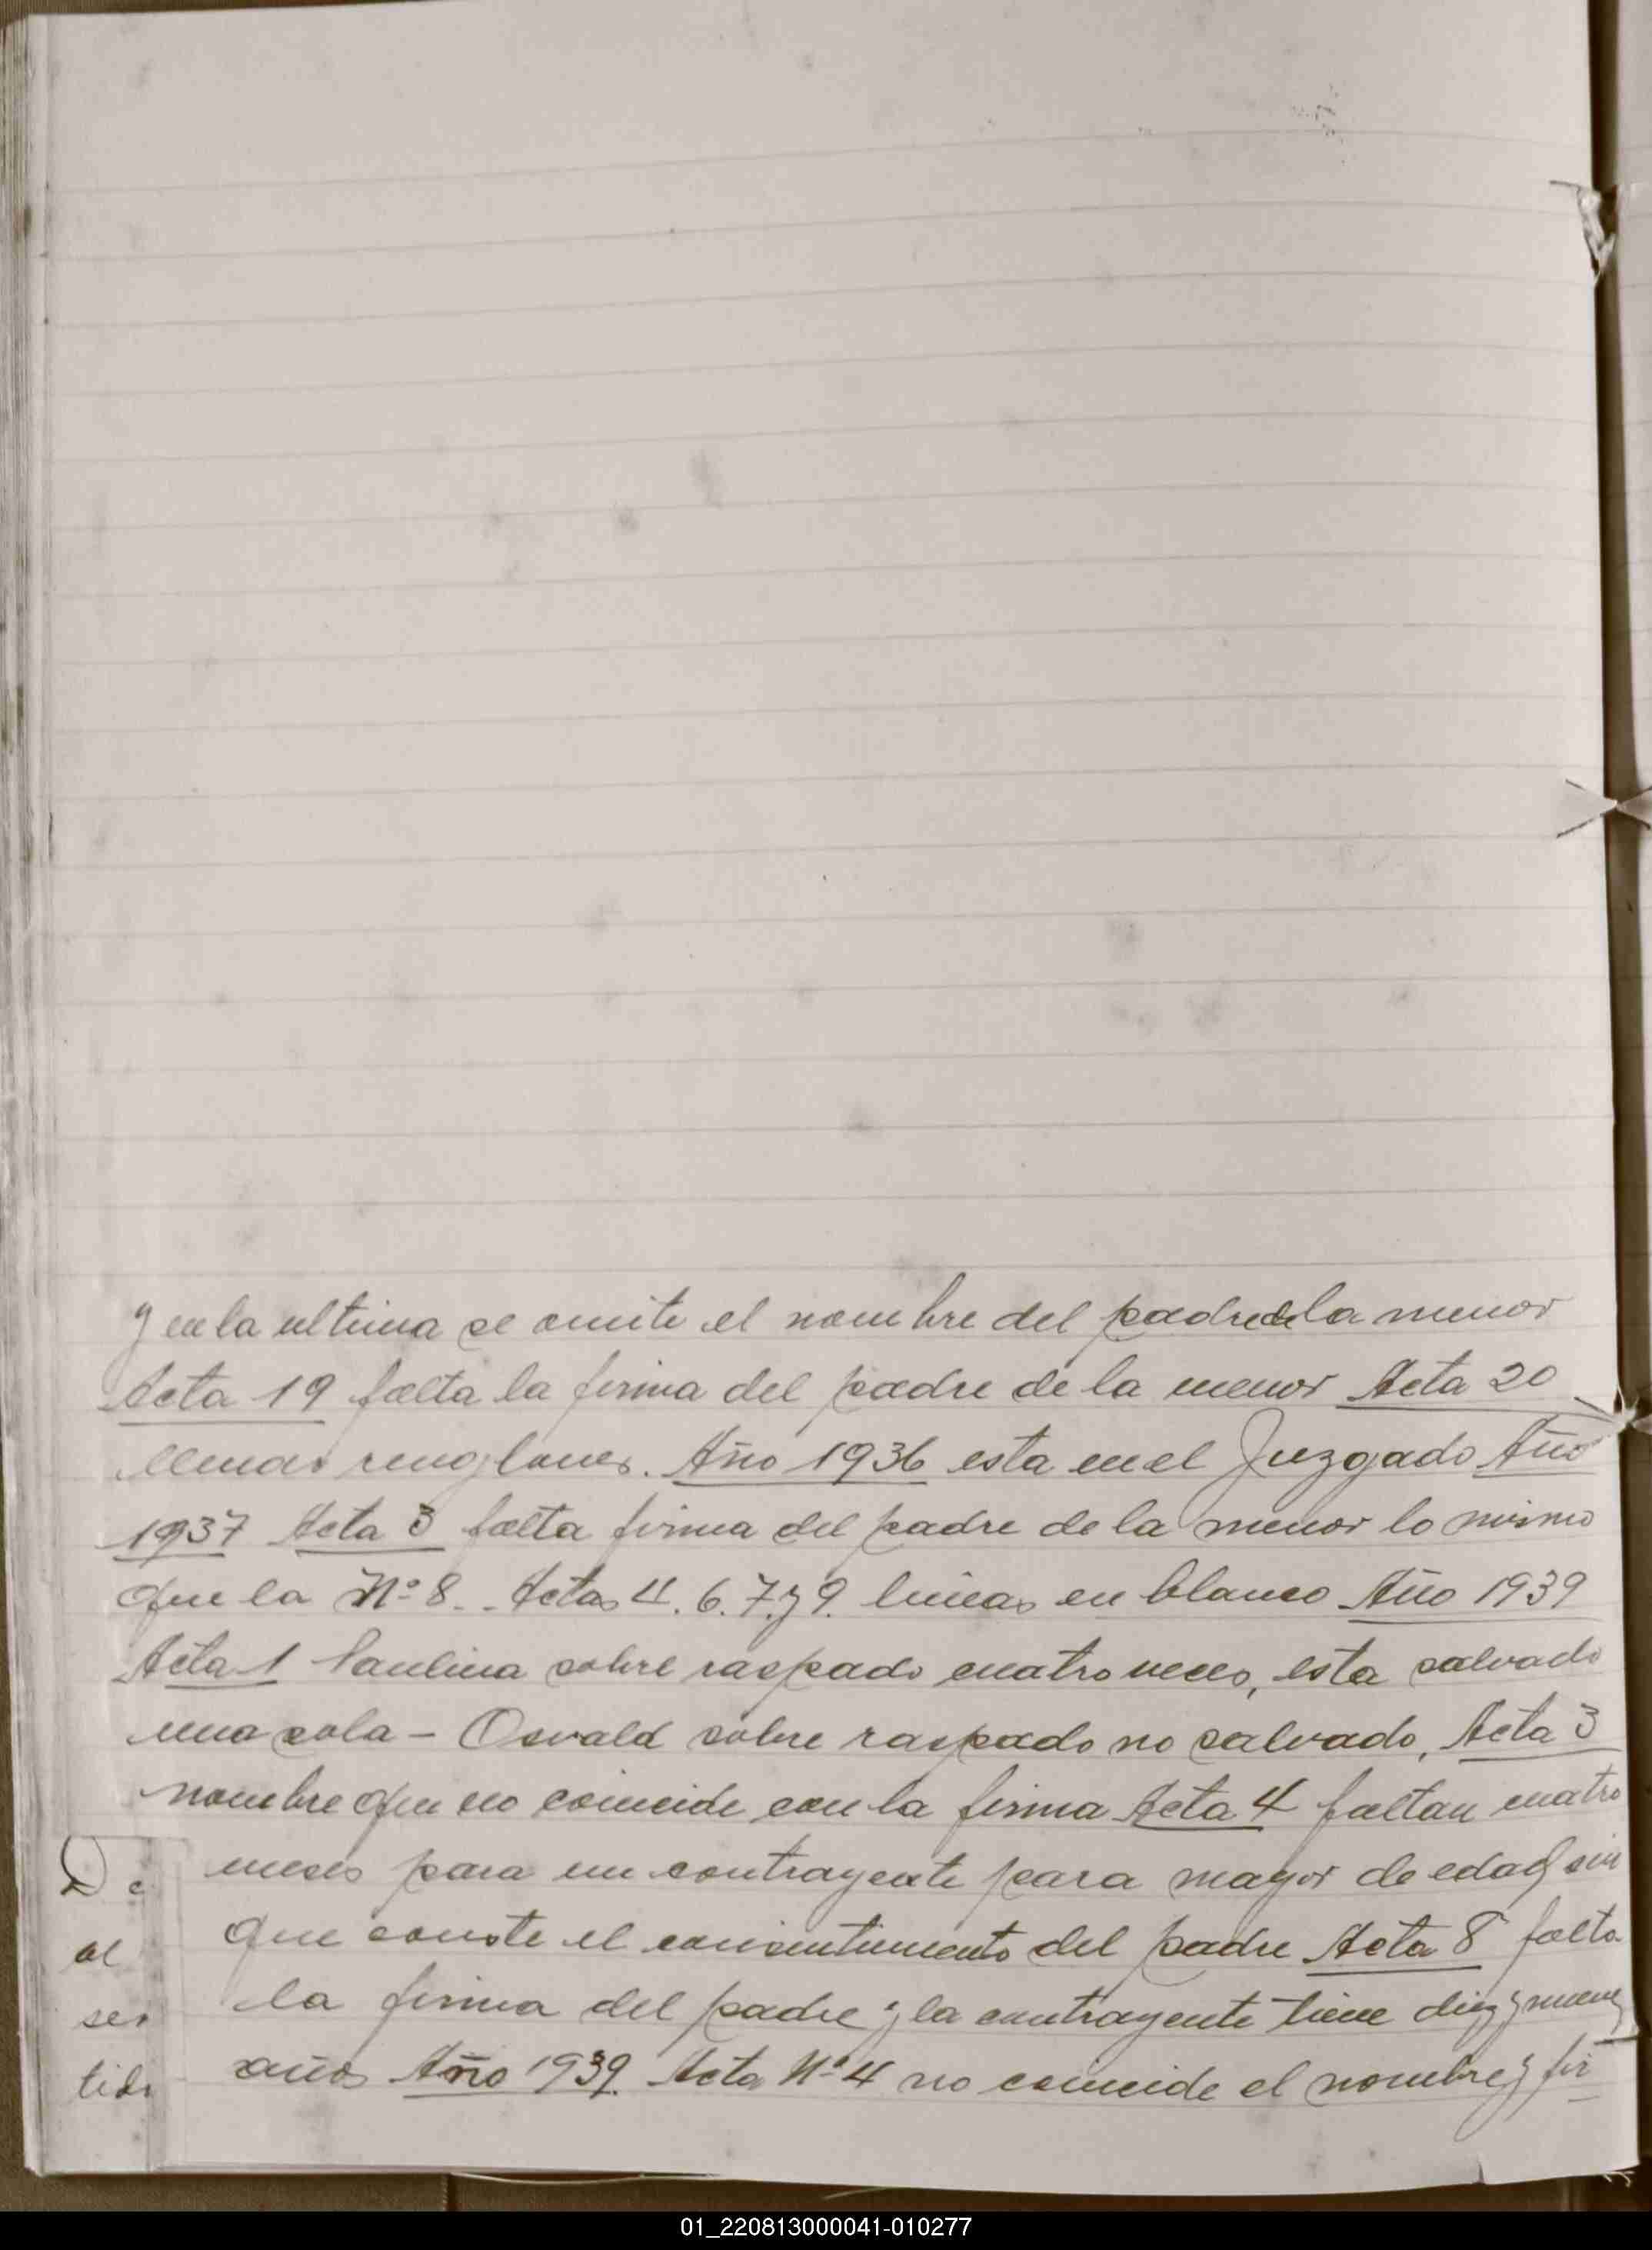 y en la ultima se omite el nombre del padre de la menor
Acta 19 falta la firma del padre de la menor Acta 20
llenar renglones. Año 1936 esta en el Juzgado Año
1937 Acta 3 falta firma del padre de la menor lo mismo
que la Nº 8. Actas 4. 6. 7. y 9. lineas en blanco Año 1939
Acta 1 Paulina sobre raspado cuatro veces, esta salvado
una sola - Osvald sobre raspado no salvado, Acta 3
nombre que no coincide con la firma Acta 4 faltan cuatro
meses para un contrayente para mayor de edad sin
que conste el consentimiento del padre Acta 8 falta
la firma del padre y la contrayente tiene diez y nueve
años Año 1939. Acta Nº 4 no coincide el nombre y fir
De
al
ser
tido
01_220813000041-010277